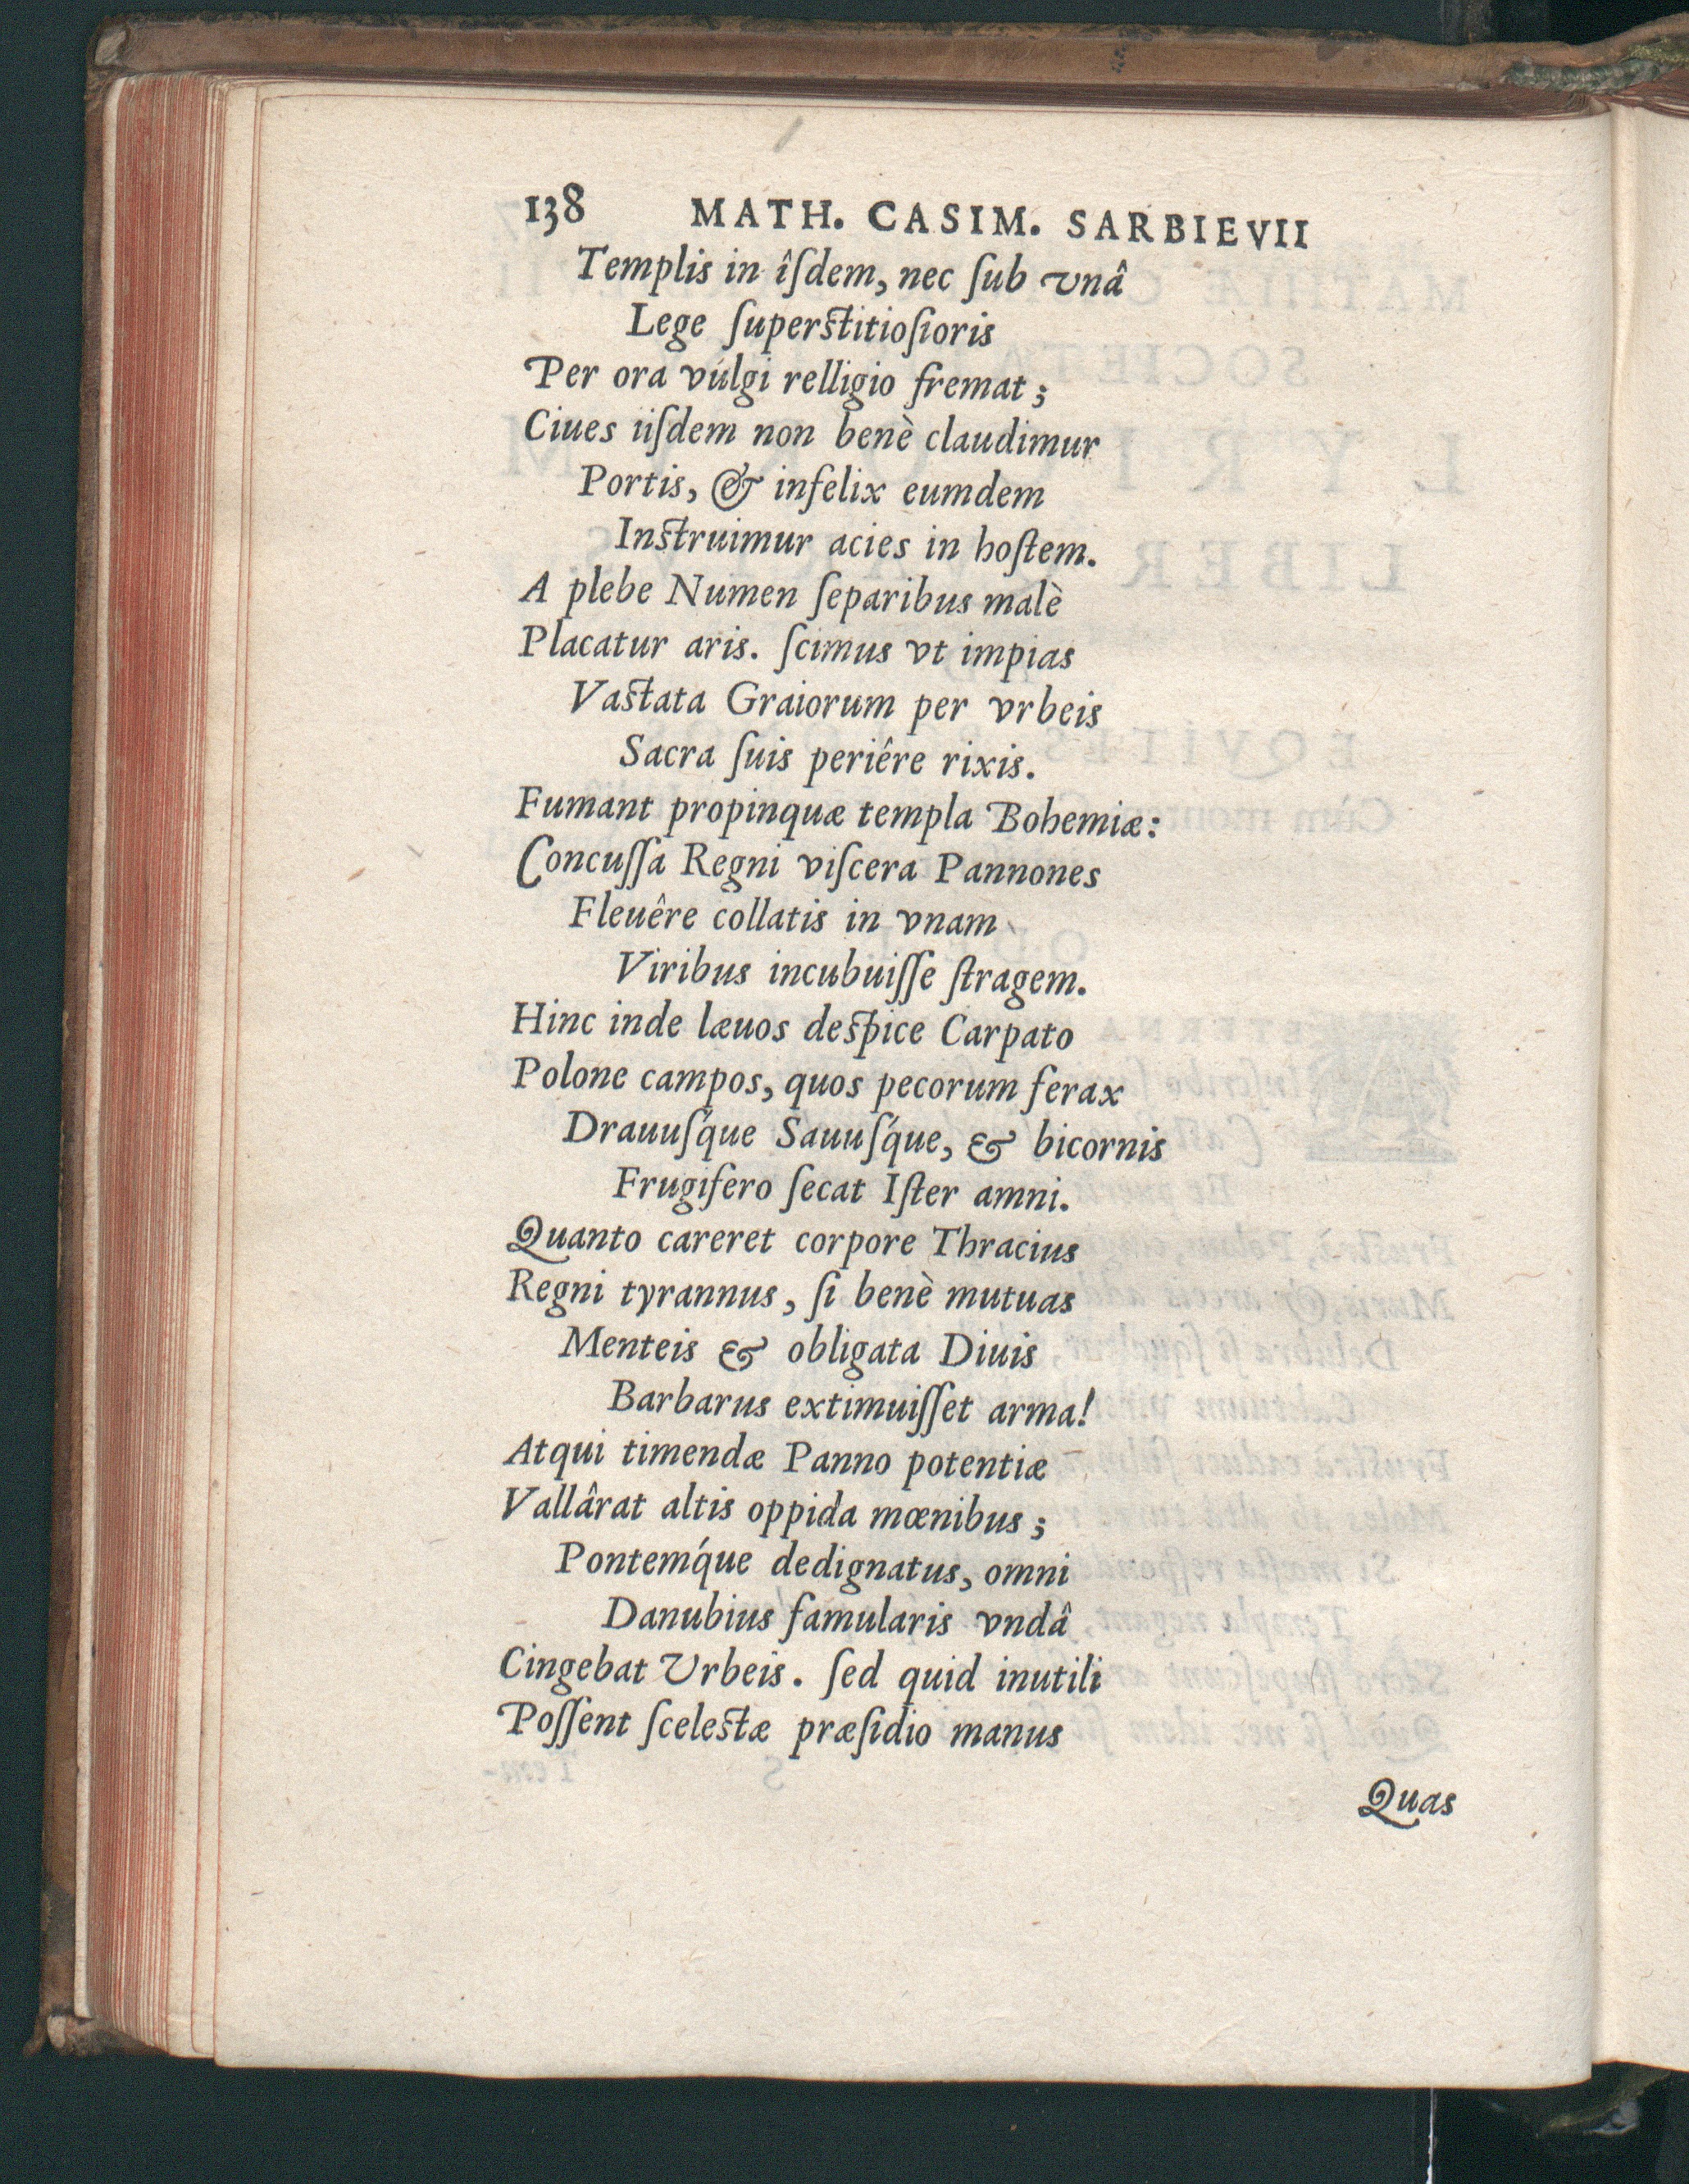 138 MATH. CASIM. SARBIEVII
Templis in îſdem, nec ſub vnâ
Lege ſuperſtitioſioris
Per ora vúlgi relligio fremat;
Ciues iiſdem non benè claudimur
Portis, & infelix eumdem
Inſtruimur acies in hoſtem.
A plebe Numen ſeparibus malè
Placatur aris. ſcimus vt impias
Vaſtata Graiorum per vrbeis
Sacra ſuis periêre rixis.
Fumant propinquæ templa Bohemiæ:
Concuſſa Regni viſcera Pannones
Fleuêre collatis in vnam
Viribus incubuiſſe ſtragem.
Hinc inde læuos deſpice Carpato
Polone campos, quos pecorum ferax
Drauuſq́ue Sauuſq́ue, & bicornis
Frugifero ſecat Iſter amni.
Quanto careret corpore Thracius
Regni tyrannus, ſi benè mutuas
Menteis & obligata Diuis
Barbarus extimuiſſet arma!
Atqui timendæ Panno potentiæ
Vallârat altis oppida mœnibus;
Pontemq́ue dedignatus, omni
Danubius famularis vndâ
Cingebat Vrbeis. ſed quid inutili
Poſſent ſceleſtæ præſidio manus
Quas